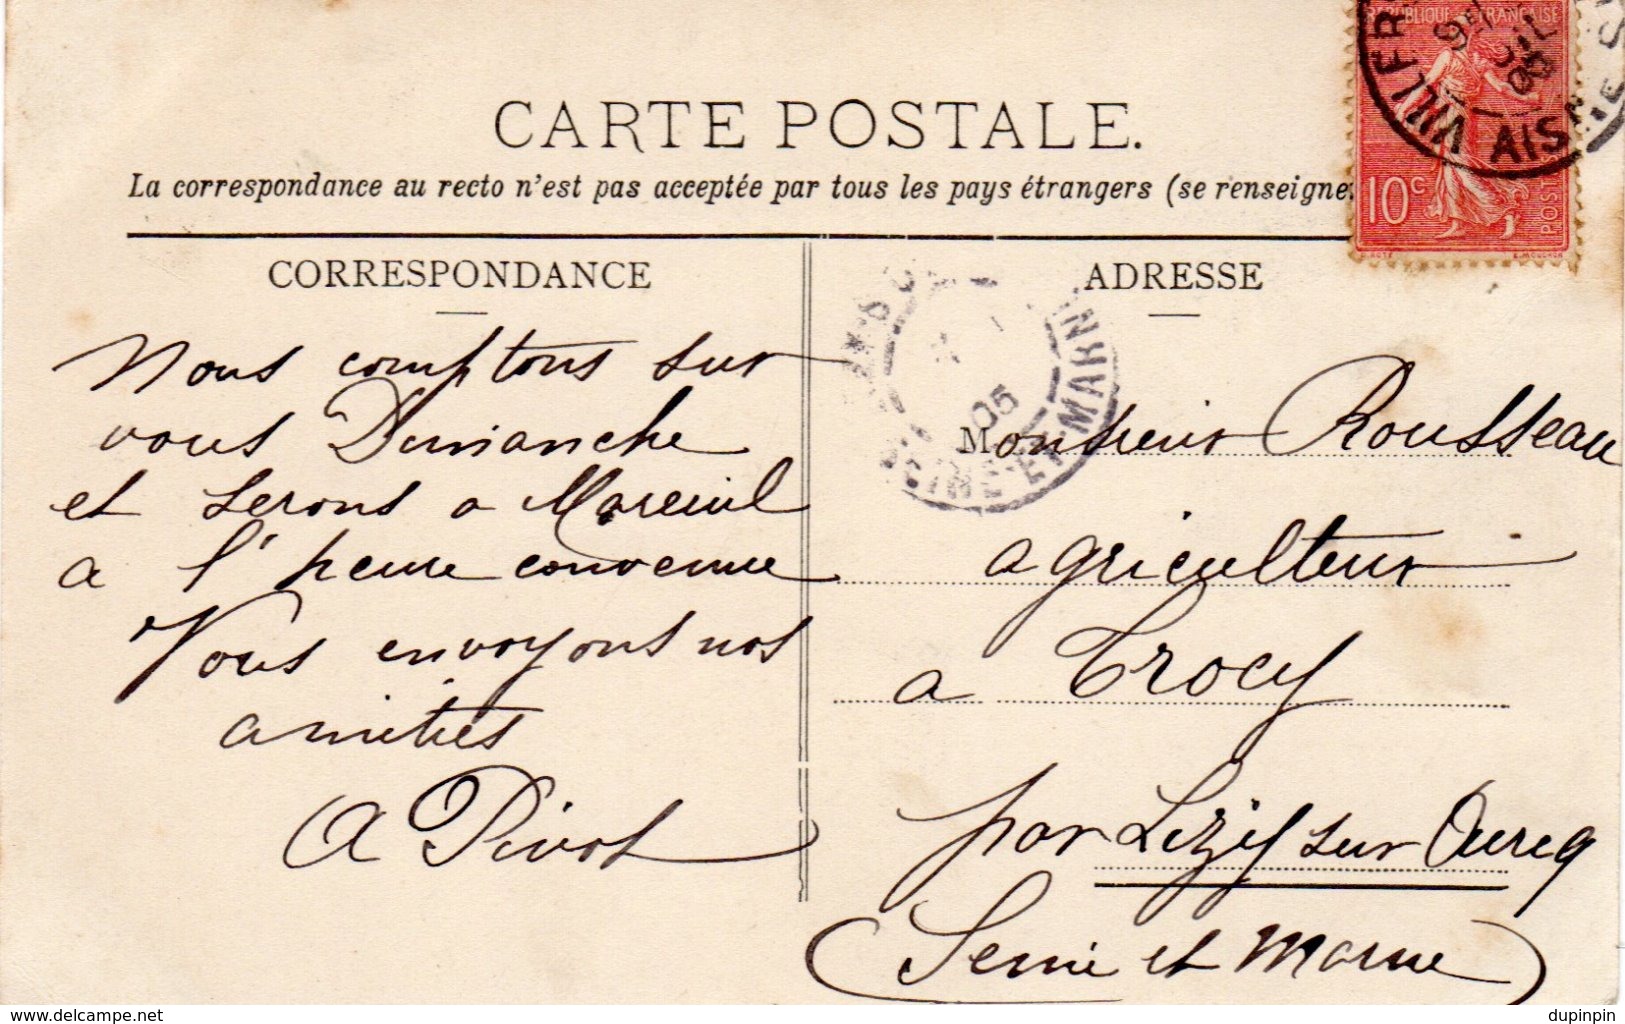 RÉPUBLIQUE FRANÇAISE
10c
POSTES
VILLFR
AISNE
CARTE POSTALE.
La correspondance au recto n'est pas acceptée par tous les pays étrangers (se renseigner
CORRESPONDANCE
Nous comptons sur
vous Dimanche
et serons a Mareuil
a l'heure convenue
Vous envoyons nos
amitiés
A Pivot
ADRESSE
05
SEINE-ET-MARNE
Monsieur Rousseau
agriculteur
a Trocy
par Lizy sur Ourcq
(Seine et Marne)
www.delcampe.net
dupinpin